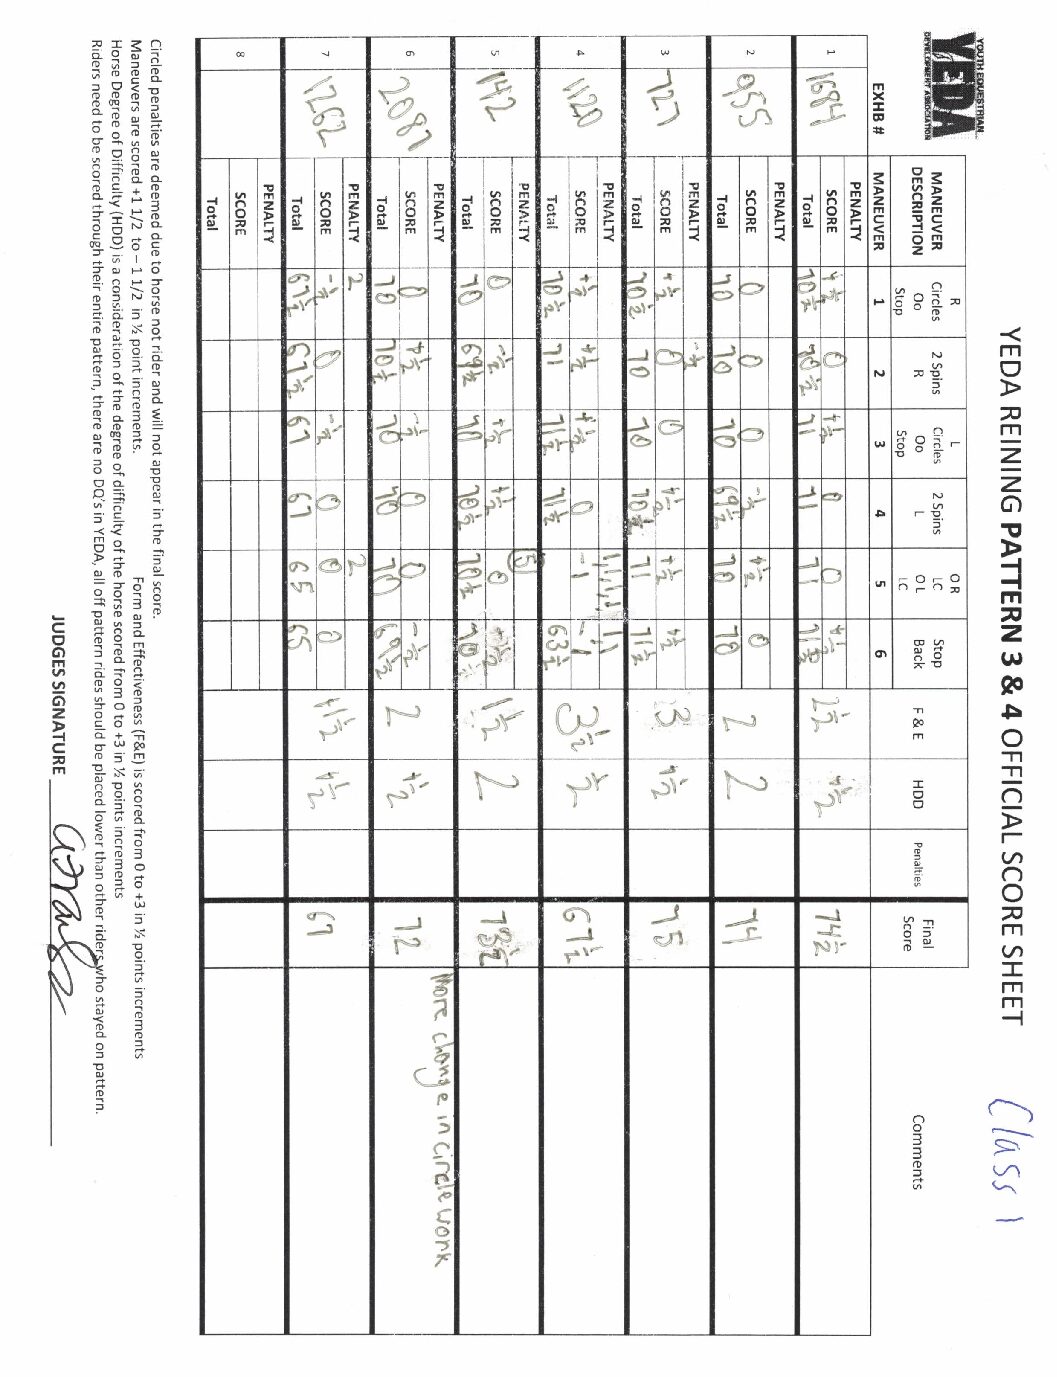 YOUTH EQUESTRIAN
YEDA
DEVELOPMENT ASSOCIATION
YEDA REINING PATTERN 3 & 4 OFFICIAL SCORE SHEET
Class 1
MANEUVER DESCRIPTION R Circles Oo Stop 2 Spins R L Circles Oo Stop 2 Spins L O R LC O L LC Stop Back F & E HDD Penalties Final Score Comments
EXHB # MANEUVER 1 2 3 4 5 6
1 1684 PENALTY
SCORE +½ 0 +½ 0 0 +½ 2½ +½ 74½
Total 70½ 70½ 71 71 71 71½
2 955 PENALTY
SCORE 0 0 0 -½ +½ 0 2 2 74
Total 70 70 70 69½ 70 70
3 727 PENALTY -½
SCORE +½ 0 0 +½ +½ +½ 3 +½ 75
Total 70½ 70 70 70½ 71 71½
4 1120 PENALTY 1,1,1,1,1 1,1
SCORE +½ +½ +½ 0 -1 -1 3½ ½ 67½
Total 70½ 71 71½ 71½ 63½
5 142 PENALTY 5
SCORE 0 -½ +½ +½ 0 1½ 2
Total 70 69½ 70 70½ 70½ 70
6 2087 PENALTY
SCORE 0 +½ -½ 0 0 -½ 2 +½ 72
Total 70 70½ 70 70 70 69½
More change in circle work
7 1262 PENALTY 2 2
SCORE -½ 0 -½ 0 0 0 +1½ +½ 67
Total 67½ 67½ 67 67 65 65
8 PENALTY
SCORE
Total
Circled penalties are deemed due to horse not rider and will not appear in the final score.
Maneuvers are scored +1 1/2 to – 1 1/2 in ½ point increments. Form and Effectiveness (F&E) is scored from 0 to +3 in ½ points increments
Horse Degree of Difficulty (HDD) is a consideration of the degree of difficulty of the horse scored from 0 to +3 in ½ points increments
Riders need to be scored through their entire pattern, there are no DQ's in YEDA, all off pattern rides should be placed lower than other riders who stayed on pattern.
JUDGES SIGNATURE